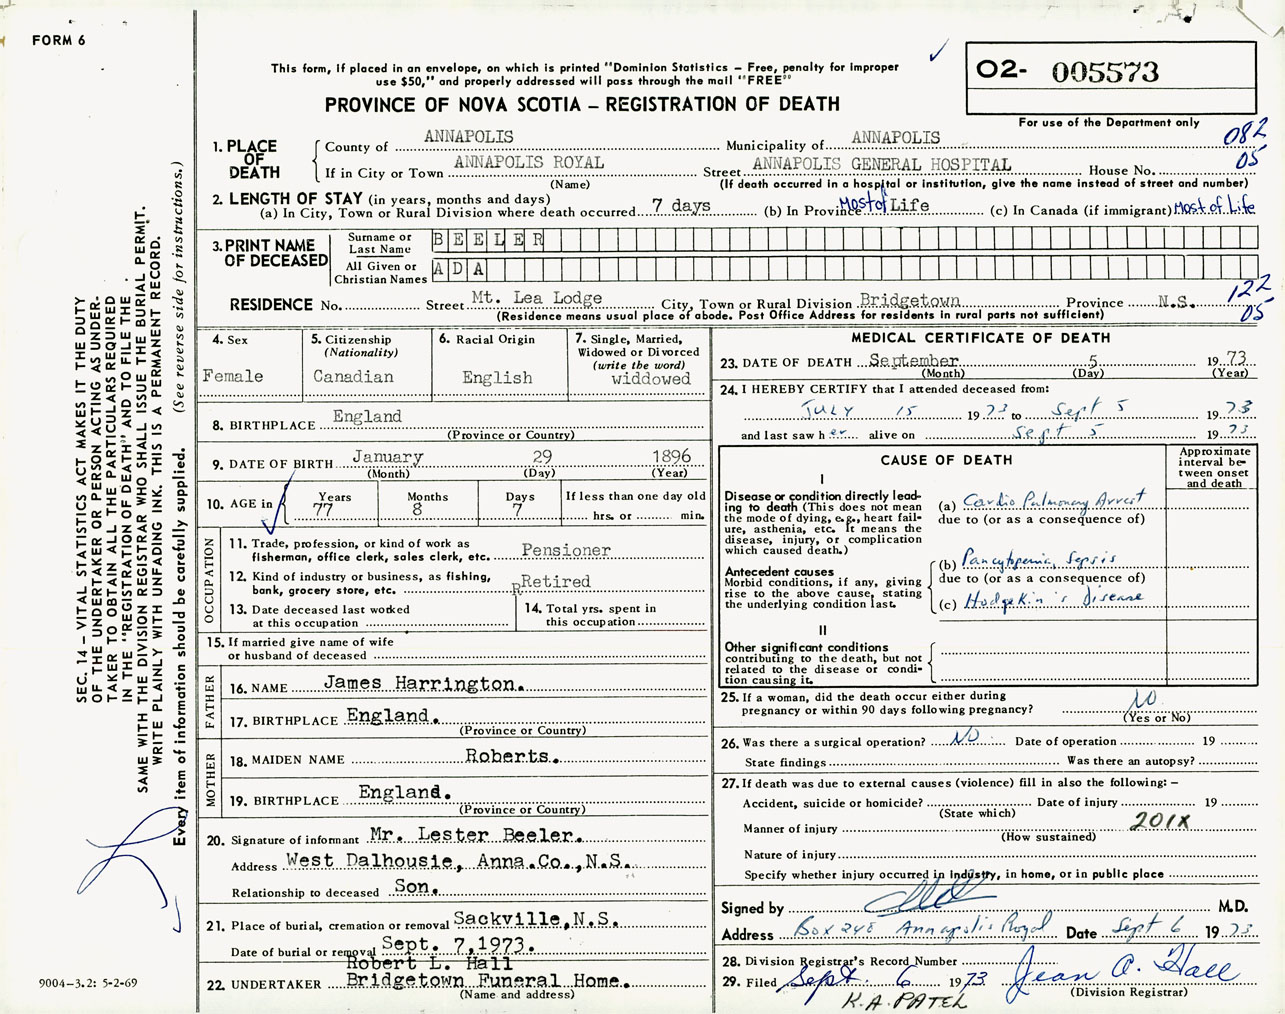 FORM 6
This form, if placed in an envelope, on which is printed "Dominion Statistics – Free, penalty for improper
use $50," and properly addressed will pass through the mail "FREE"
PROVINCE OF NOVA SCOTIA – REGISTRATION OF DEATH
O2- 005573
For use of the Department only
082
05
1. PLACE OF DEATH
County of ANNAPOLIS Municipality of ANNAPOLIS
If in City or Town ANNAPOLIS ROYAL Street ANNAPOLIS GENERAL HOSPITAL House No.
(Name) (If death occurred in a hospital or institution, give the name instead of street and number)
2. LENGTH OF STAY (in years, months and days)
(a) In City, Town or Rural Division where death occurred 7 days (b) In Province Most of Life (c) In Canada (if immigrant) Most of Life
3. PRINT NAME OF DECEASED
Surname or Last Name BEELER
All Given or Christian Names ADA
RESIDENCE No. Street Mt. Lea Lodge City, Town or Rural Division Bridgetown Province N.S.
(Residence means usual place of abode. Post Office Address for residents in rural parts not sufficient)
122
05
4. Sex
Female
5. Citizenship
(Nationality)
Canadian
6. Racial Origin
English
7. Single, Married,
Widowed or Divorced
(write the word)
widdowed
8. BIRTHPLACE England
(Province or Country)
9. DATE OF BIRTH January 29 1896
(Month) (Day) (Year)
10. AGE in Years 77 Months 8 Days 7 If less than one day old
hrs. or min.
OCCUPATION
11. Trade, profession, or kind of work as
fisherman, office clerk, sales clerk, etc. Pensioner
12. Kind of industry or business, as fishing,
bank, grocery store, etc. RRetired
13. Date deceased last worked
at this occupation
14. Total yrs. spent in
this occupation
15. If married give name of wife
or husband of deceased
FATHER
16. NAME James Harrington.
17. BIRTHPLACE England.
(Province or Country)
MOTHER
18. MAIDEN NAME Roberts.
19. BIRTHPLACE England.
(Province or Country)
20. Signature of informant Mr. Lester Beeler.
Address West Dalhousie, Anna.Co.,N.S.
Relationship to deceased Son.
21. Place of burial, cremation or removal Sackville,N.S.
Date of burial or removal Sept. 7,1973.
Robert L. Hall
22. UNDERTAKER Bridgetown Funeral Home.
(Name and address)
MEDICAL CERTIFICATE OF DEATH
23. DATE OF DEATH September 5 1973
(Month) (Day) (Year)
24. I HEREBY CERTIFY that I attended deceased from:
JULY 15 1973 to Sept 5 1973
and last saw her alive on Sept 5 1973
CAUSE OF DEATH
Approximate
interval be-
tween onset
and death
I
Disease or condition directly lead-
ing to death (This does not mean
the mode of dying, e.g., heart fail-
ure, asthenia, etc. It means the
disease, injury, or complication
which caused death.)
(a) Cardio Pulmonary Arrest
due to (or as a consequence of)
Antecedent causes
Morbid conditions, if any, giving
rise to the above cause, stating
the underlying condition last.
(b) Pancytopenia, Sepsis
due to (or as a consequence of)
(c) Hodgekin's Disease
II
Other significant conditions
contributing to the death, but not
related to the disease or condi-
tion causing it.
25. If a woman, did the death occur either during
pregnancy or within 90 days following pregnancy? NO
(Yes or No)
26. Was there a surgical operation? NO Date of operation 19
State findings Was there an autopsy?
27. If death was due to external causes (violence) fill in also the following: –
Accident, suicide or homicide? Date of injury 19
(State which)
Manner of injury 201X
(How sustained)
Nature of injury
Specify whether injury occurred in industry, in home, or in public place
Signed by M.D.
Address Box 248 Annapolis Royal Date Sept 6 1973
28. Division Registrar's Record Number
29. Filed Sept. 6 1973 Jean A. Hall
(Division Registrar)
K.A. PATEL
SEC. 14 – VITAL STATISTICS ACT MAKES IT THE DUTY
OF THE UNDERTAKER OR PERSON ACTING AS UNDER-
TAKER TO OBTAIN ALL THE PARTICULARS REQUIRED
IN THE "REGISTRATION OF DEATH" AND TO FILE THE
SAME WITH THE DIVISION REGISTRAR WHO SHALL ISSUE THE BURIAL PERMIT.
WRITE PLAINLY WITH UNFADING INK. THIS IS A PERMANENT RECORD.
Every item of information should be carefully supplied. (See reverse side for instructions.)
9004-3.2: 5-2-69